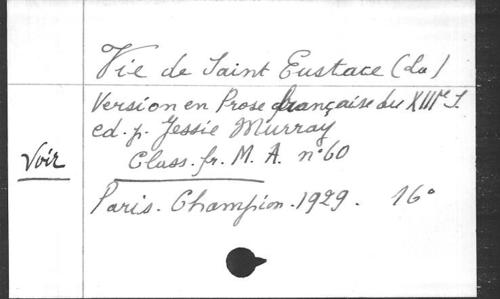 Vie de Saint Eustace (La)
Version en Prose française du XIIIe S.
ed. p. Jessie Murray
Voir Class. fr. M. A. n° 60
Paris. Champion. 1929. 16°